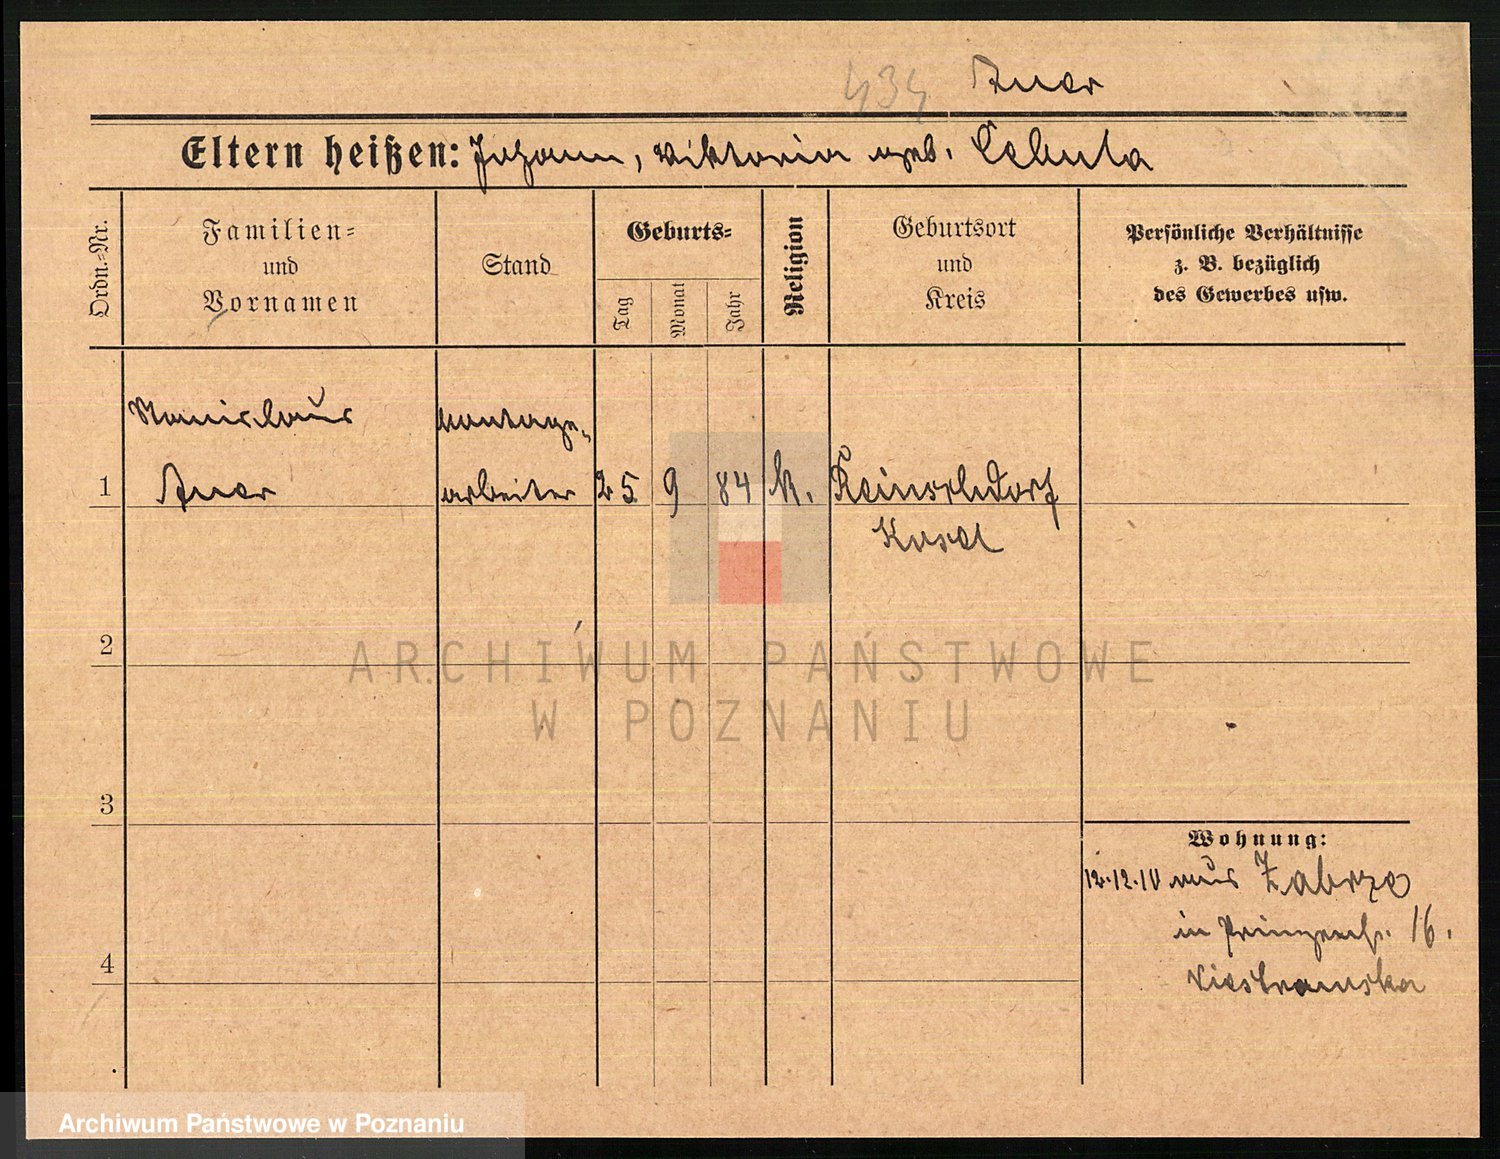 434 Auer
Eltern heißen: Johann, Viktoria geb. Cebula
Ordn.-Nr.
Familien=
und
Vornamen
Stand
Geburts=
Tag
Monat
Jahr
Religion
Geburtsort
und
Kreis
Persönliche Verhältnisse
z. B. bezüglich
des Gewerbes usw.
Stanislaus
Montage-
1 Auer arbeiter 25 9 84 k. Reinschdorf
Kosel
2
ARCHIWUM PAŃSTWOWE
W POZNANIU
3
Wohnung:
12.12.10 aus Zabrze
in 16.
4
Archiwum Państwowe w Poznaniu